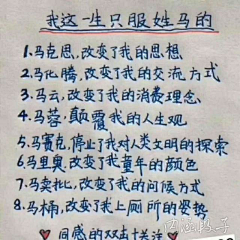 我这一生只服姓马的
1.马克思,改变了我的思想
2.马化腾,改变了我的交流方式
3.马云,改变了我的消费理念
4.马蓉,颠覆我的人生观
5.马赛克,停止了我对人类文明的探索
6.马里奥改变了我童年的颜色
7.马卖批,改变了我的问候方式
8.马桶,改变了我上厕所的姿势
同感的双击+关注